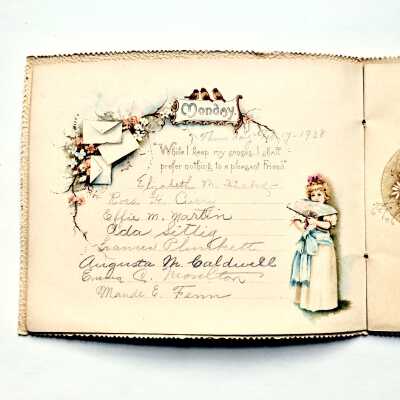 Monday.
1928
"While I keep my senses, I shall
prefer nothing to a pleasant Friend."
Elizabeth M.
Effie M. Martin
Ada Sittig
Frances Plunkett
Augusta M. Caldwell
Emma C. Moselton
Maude E. Fenn